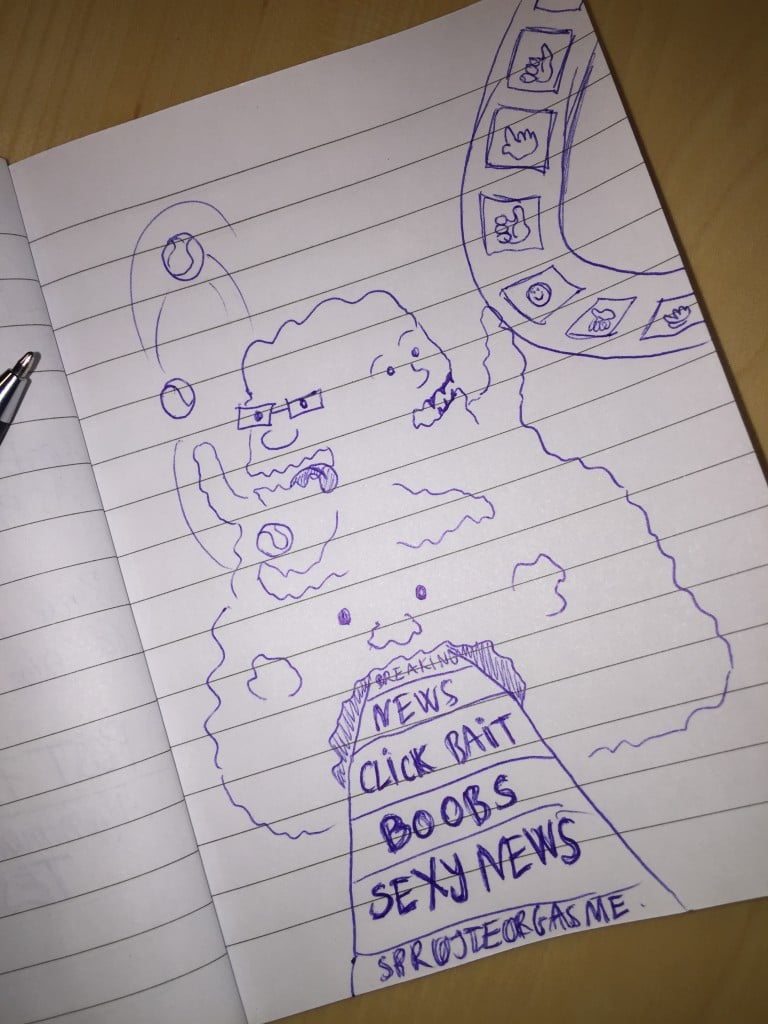 BREAKING
NEWS
CLICK BAiT
BOOBS
SEXY NEWS
SPRØJTEORGASME.